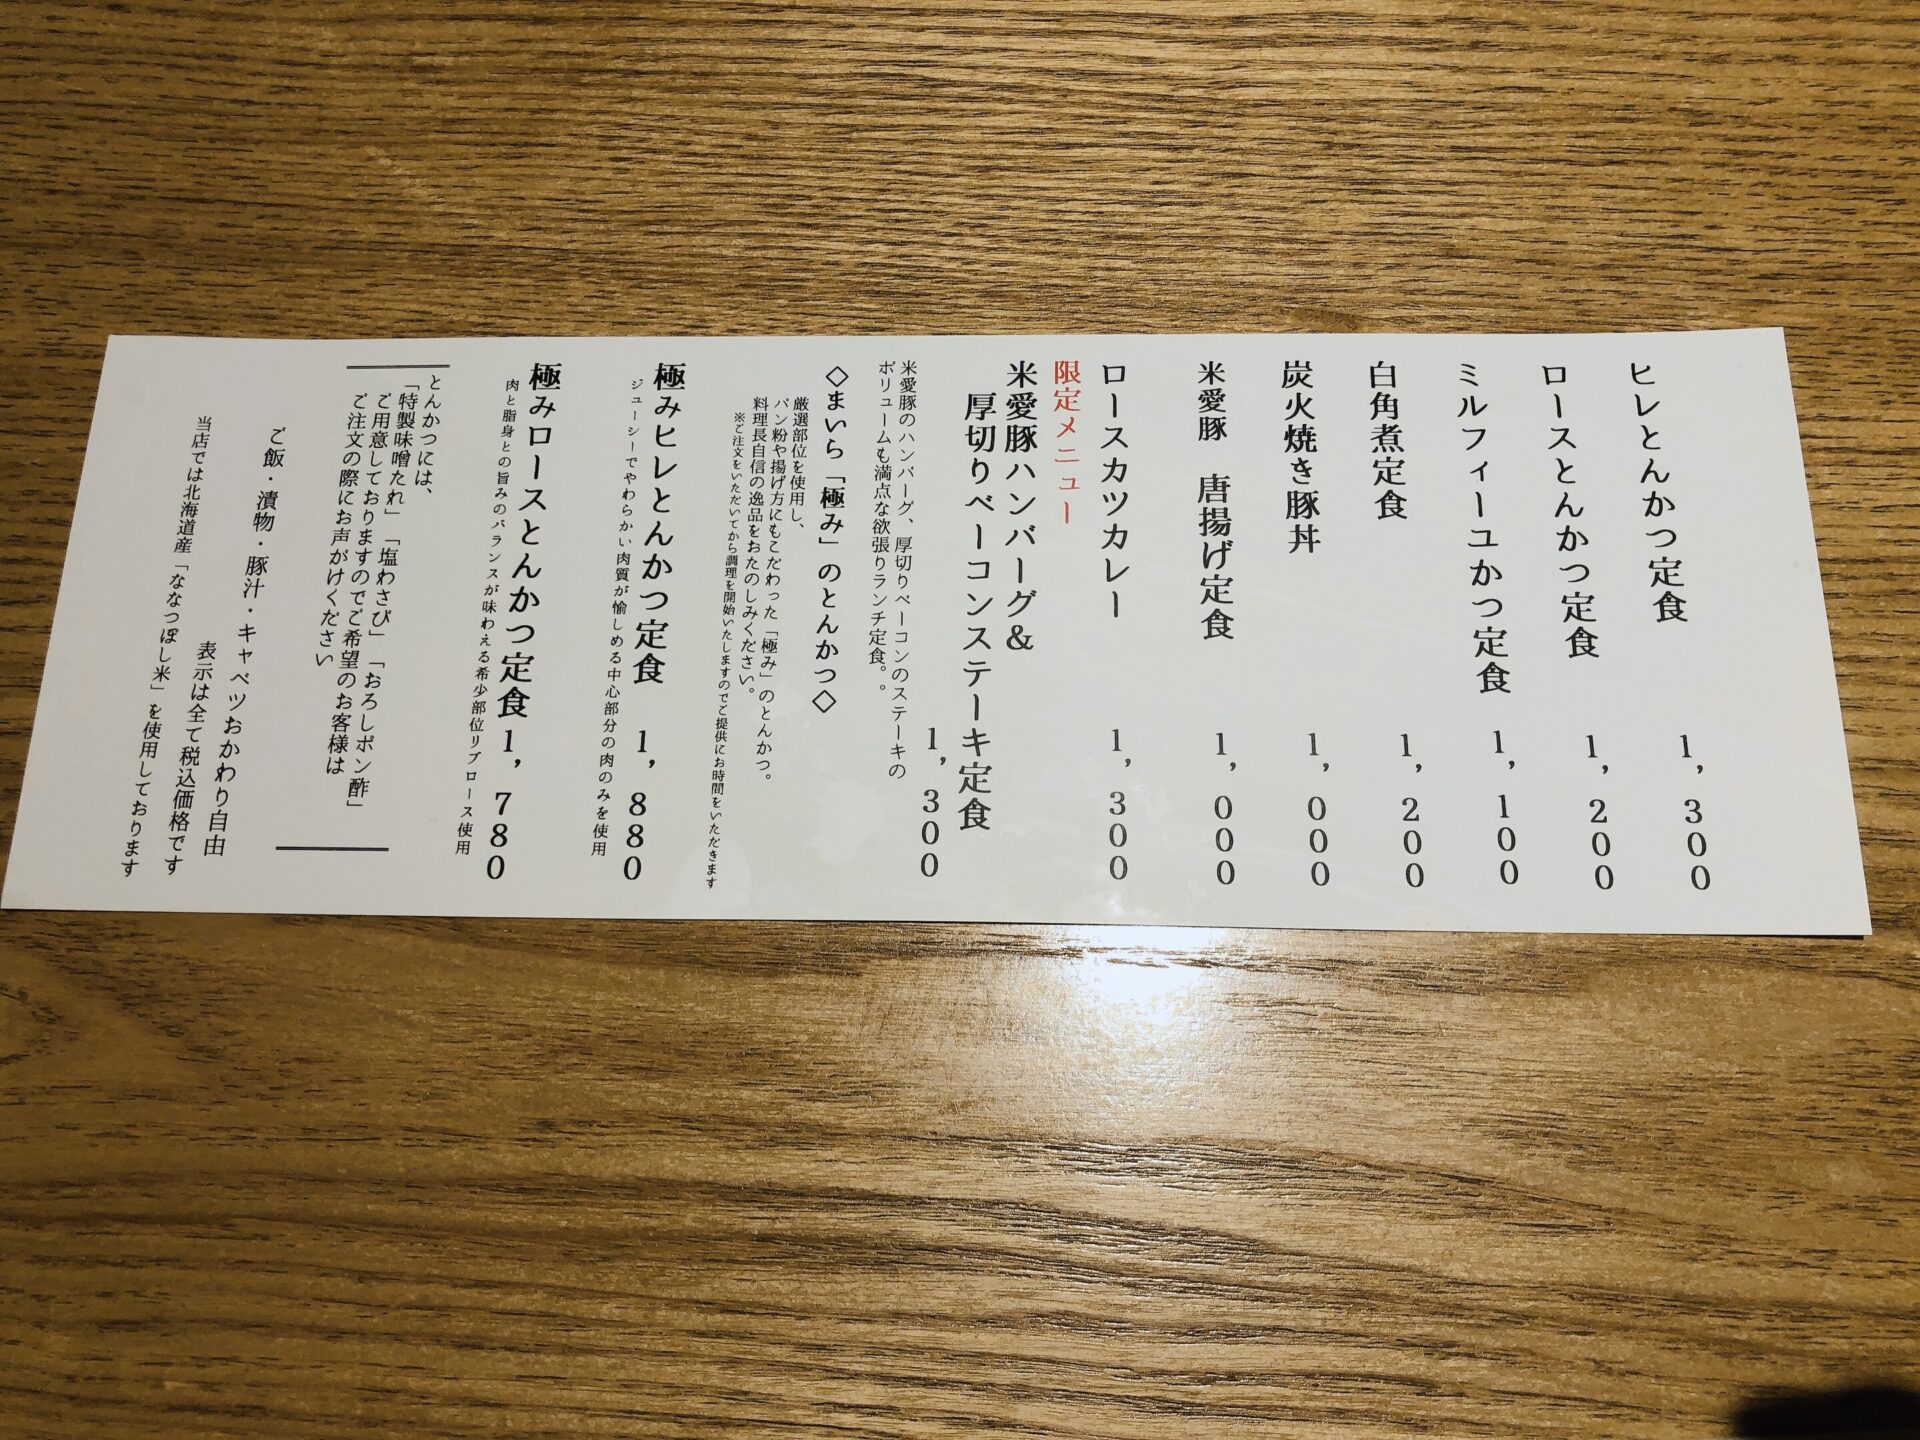 ヒレとんかつ定食 1,300
ロースとんかつ定食 1,200
ミルフィーユかつ定食 1,100
白角煮定食 1,200
炭火焼き豚丼 1,000
米愛豚 唐揚げ定食 1,000
ロースカツカレー 1,300
限定メニュー
米愛豚ハンバーグ&
厚切りベーコンステーキ定食
1,300
米愛豚のハンバーグ、厚切りベーコンのステーキの
ボリュームも満点な欲張りランチ定食。。
◇まいら「極み」のとんかつ◇
厳選部位を使用し、
パン粉や揚げ方にもこだわった「極み」のとんかつ。
料理長自信の逸品をおたのしみください。
※ご注文をいただいてから調理を開始いたしますのでご提供にお時間をいただきます
極みヒレとんかつ定食 1,880
ジューシーでやわらかい肉質が愉しめる中心部分の肉のみを使用
極みロースとんかつ定食 1,780
肉と脂身との旨みのバランスが味わえる希少部位リブロース使用
とんかつには、
「特製味噌たれ」「塩わさび」「おろしポン酢」
ご用意しておりますのでご希望のお客様は
ご注文の際にお声がけください
ご飯・漬物・豚汁・キャベツおかわり自由
表示は全て税込価格です
当店では北海道産「ななつぼし米」を使用しております